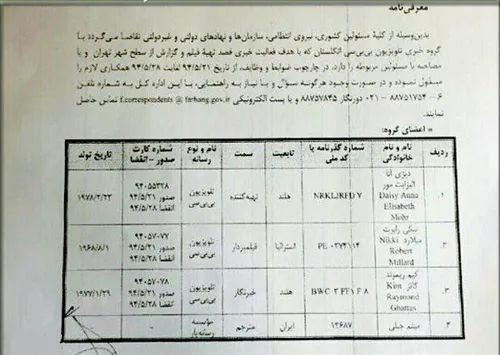 معرفی‌نامه
بدین‌وسیله از کلیهٔ مسئولین کشوری، نیروی انتظامی، سازمان‌ها و نهادهای دولتی و غیردولتی تقاضا می‌گردد با
گروه خبری تلویزیون بی‌بی‌سی انگلستان که با هدف فعالیت خبری قصد تهیهٔ فیلم و گزارش از سطح شهر تهران و یا
مصاحبه با مسئولین مربوطه را دارد، در چارچوب ضوابط و وظایف، از تاریخ ۹۴/۵/۲۱ لغایت ۹۴/۵/۲۸ همکاری لازم را
مبذول نموده و در صورت وجود هرگونه سؤال و یا نیاز به راهنمایی، با این اداره کل به شماره تلفن
۶ – ۸۸۷۵۱۷۵۴ – ۰۲۱ دورنگار ۸۸۷۵۷۸۴۵ و یا پست الکترونیکی f.correspondents @ farhang.gov.ir تماس حاصل
نمایند.
اعضای گروه:
ردیف نام و نام خانوادگی شماره گذرنامه یا کد ملی تابعیت سمت نام و نوع رسانه شماره کارت صدور – انقضا تاریخ تولد
۱. دیزی آنا الیزابت مور Daisy Anna Elisabeth Mohr هلند تهیه‌کننده تلویزیون بی‌بی‌سی ۹۴۰۵۵۳۲۸ صدور ۹۴/۵/۲۱ انقضا ۹۴/۵/۲۸ ۱۹۷۸/۲/۲۲
۲. نیکی رابرت میلارد Nikki Robert Millard PE ۰۲۷۴۱۱۴ استرالیا فیلمبردار تلویزیون بی‌بی‌سی ۹۴۰۵۷۰۷۷ صدور ۹۴/۵/۲۱ انقضا ۹۴/۵/۲۸ ۱۹۶۸/۸/۱
۳. کیم ریموند گاتز Kim Raymond Ghattas هلند خبرنگار تلویزیون بی‌بی‌سی ۹۴۰۵۷۰۷۸ صدور ۹۴/۵/۲۱ انقضا ۹۴/۵/۲۸ ۱۹۷۷/۱/۲۹
۴. میثم جبلی ۱۳۶۸۷ ایران مترجم موسسه رسانه‌یار -